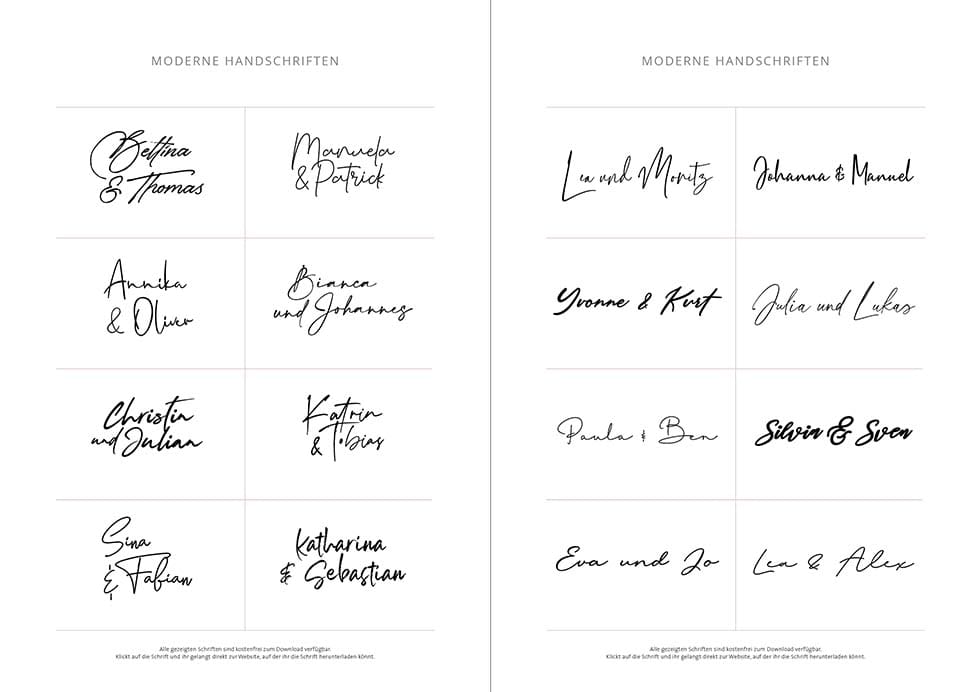 MODERNE HANDSCHRIFTEN
Bettina
& Thomas
Manuela
& Patrick
Annika
& Oliver
Bianca
und Johannes
Christin
und Julian
Katrin
& Tobias
Sina
& Fabian
Katharina
& Sebastian
Alle gezeigten Schriften sind kostenfrei zum Download verfügbar.
Klickt auf die Schrift und ihr gelangt direkt zur Website, auf der ihr die Schrift herunterladen könnt.
MODERNE HANDSCHRIFTEN
Lea und Moritz
Johanna & Manuel
Yvonne & Kurt
Julia und Lukas
Paula & Ben
Silvia & Sven
Eva und Jo
Lea & Alex
Alle gezeigten Schriften sind kostenfrei zum Download verfügbar.
Klickt auf die Schrift und ihr gelangt direkt zur Website, auf der ihr die Schrift herunterladen könnt.